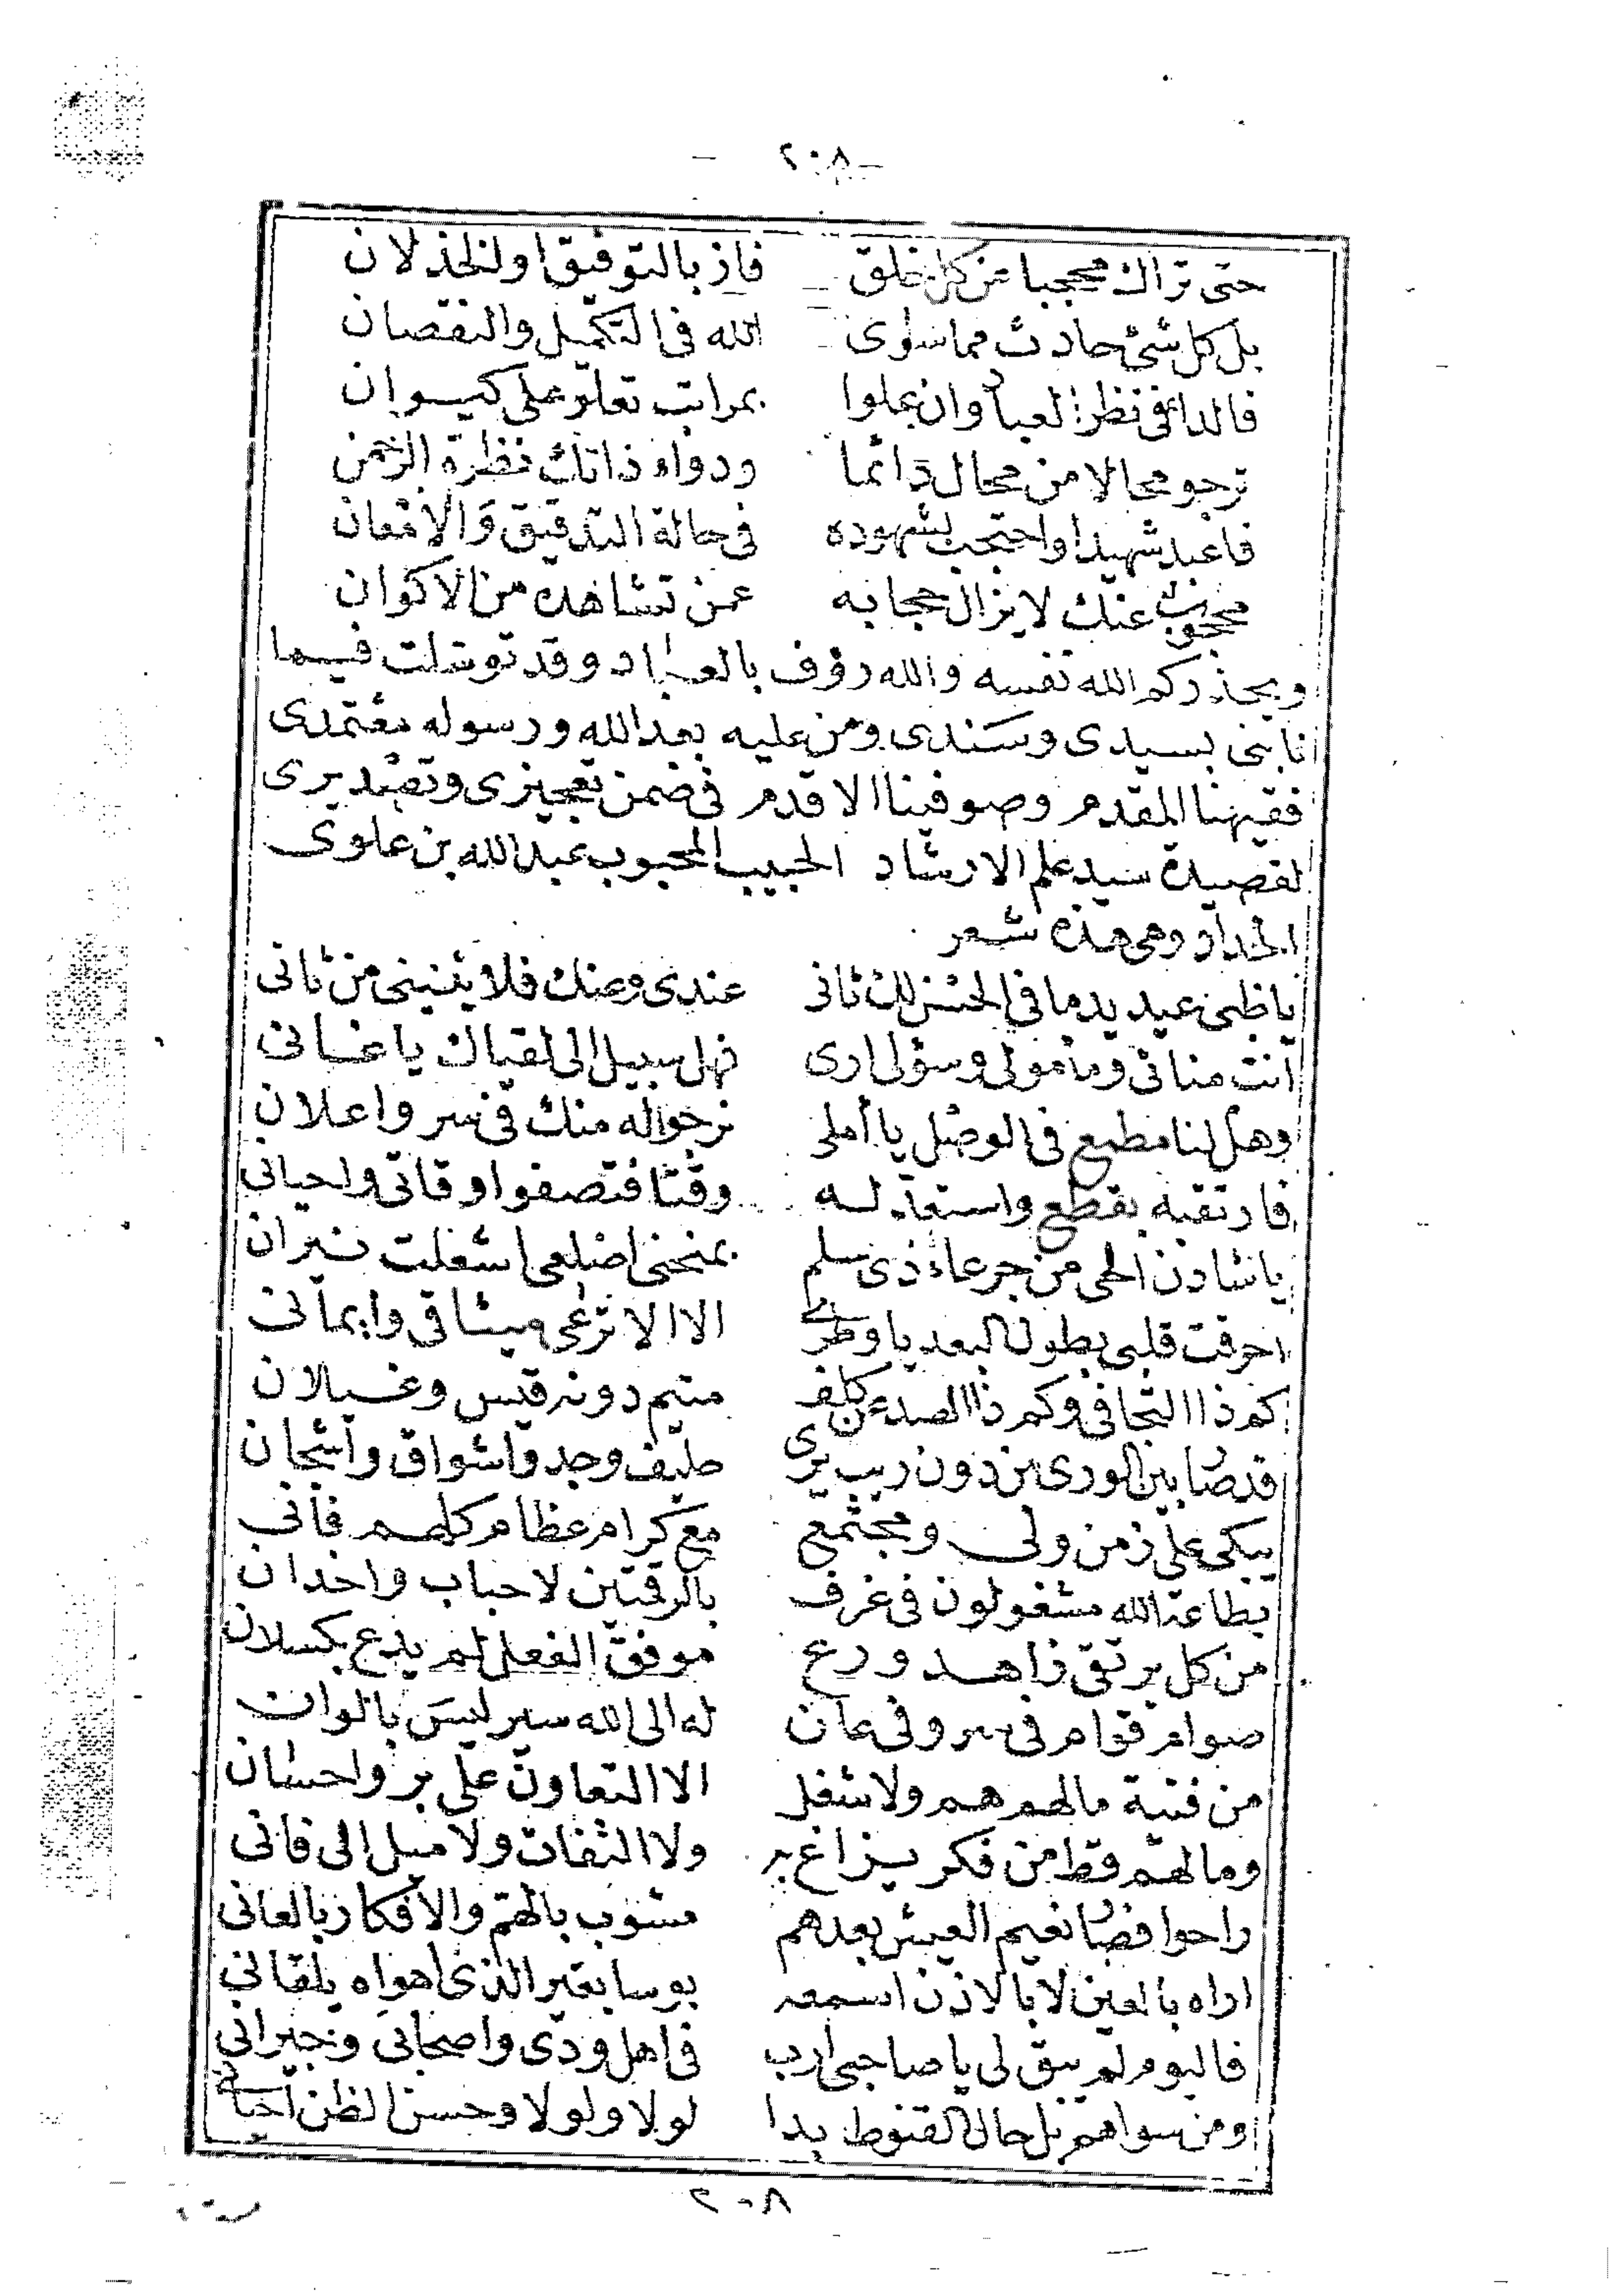 - ٢٠٨ -
حتى تراك محجبا عن كل خلق فاز بالتوفيق اولخذلان
بل كل شئ حادث مما سوى الله فى التكميل والنقصان
فالدا فى نظر العباد وان علوا بمراتب تعلو على كيوان
ترجو محالا من محال دائما ودواء ذاتك نظرة الرحمن
فاعبد شهيدا واحتجب لشهوده فى حالة التدقيق والامعان
محجوب عنك لا يزال حجابه عمن تشاهده من الاكوان
ويحذركم الله نفسه والله رؤف بالعباد وقد توسلت فيما
نابنى بسيدى وسندى ومن عليه بعد الله ورسوله معتمدى
فقيهنا المقدم وصوفينا الاقدم فى ضمن تعجيزى وتصديرى
لقصيدة سيد علم الارشاد الحبيب المحبوب عبد الله بن علوى
الحداد وهى هذه شعر
يا ظبى عيديد ما فى الحسن لك ثانى عندى وعنك فلا يثنينى من ثانى
انت منائى ومأمولى وسؤلى ارى فهل سبيل الى لقياك يا غانى
وهل لنا مطمع فى الوصل يا أملى نرجواله منك فى سر واعلان
فارتقبه بقطع واستعد له وقتا فتصفوا وقاتى واحيانى
يا شادن الحى من جرعاء ذى سلم بمنحنى اضلعى اشعلت نيران
احرقت قلبى بطول البعد يا وطرى الا الا ترعى ميثاقى وايمانى
كم ذا التجافى وكم ذا الصد عن كلف متيم دونه قيس وغيلان
قد صا بين الورى من دون ريب يرى حليف وجد واشواق واشجان
يبكى على زمن ولى ومجتمع مع كرام عظام كلهم فانى
بطاعة الله مشغولون فى غرف بالرقتين لاحباب واخدان
من كل بر تقى زاهد ورع موفق الفعل لم يدع بكسلان
صوام قوام فى سر وفى علن له الى الله سير ليس بالوان
من فتية مالهم هم ولا شغل الا التعاون على بر واحسان
ومالهم قط من فكر يزاغ به ولا التفات ولا ميل الى فانى
راحوا فصا نعيم العيش بعدهم مشوب بالهم والافكار بالعانى
اراه بالعين لا بالاذن اسمعه بوسا بغير الذى اهواه يلقانى
فاليوم لم يبق لى يا صاحبى ارب فى اهل ودى واصحابى وجيرانى
ومن سواهم بل حال القنوط بدا لولا ولولا وحسن الظن احيانى
٢٠٨